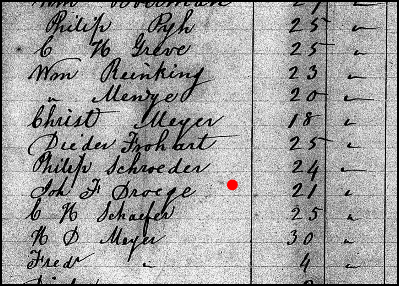 Philip Pyh 25 "
C H Greve 25 "
Wm Reinking 23 "
" Menye 20 "
Christ Meyer 18 "
Dieder Frohart 25 "
Philip Schroeder 24 "
Joh F Droege 21 "
C H Schaefer 25 "
H D Meyer 30 "
Fredr " 4 "